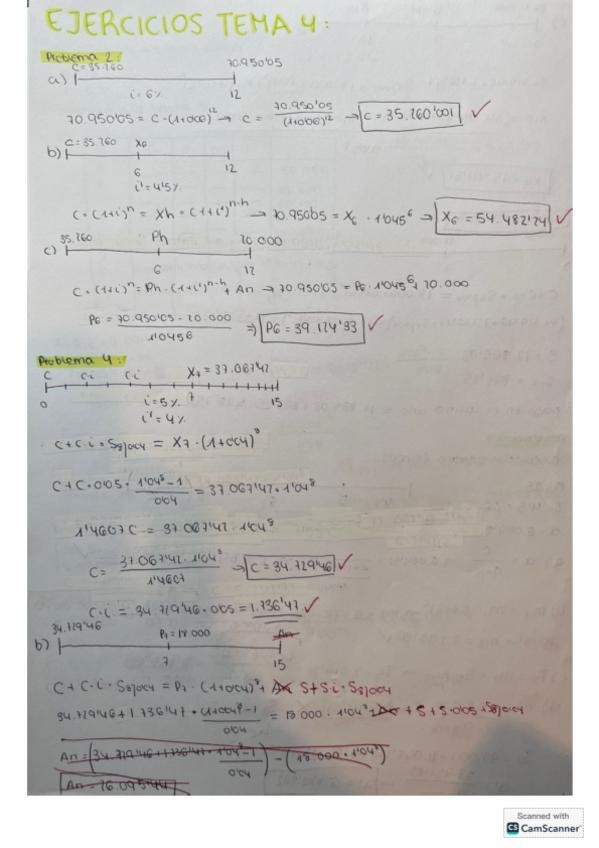 EJERCICIOS TEMA 4:
Problema 2:
C = 35.260 70.950'05
a)
i = 6% 12
70.950'05 = C·(1+0'06)^12 → C = 70.950'05 / (1+0'06)^12 → C = 35.260'001 ✓
C = 35.260 X6
b)
6 12
i' = 4'5%
C·(1+i)^n = Xh·(1+i')^n-h → 70.950'05 = X6·1'045^6 → X6 = 54.482'24 ✓
35.260 Ph 20.000
c)
6 12
C·(1+i)^n = Ph·(1+i')^n-h + An → 70.950'05 = P6·1'045^6 + 20.000
P6 = 70.950'05 - 20.000 / 1'045^6 ⇒ P6 = 39.124'33 ✓
Problema 4:
C Ci Ci X7 = 37.067'47
0 i = 5% 7 15
i' = 4%
C + C·i·S8|0'04 = X7·(1+0'04)^8
C + C·0'05·1'04^8-1 / 0'04 = 37.067'47·1'04^8
1'4607C = 37.067'47·1'04^8
C = 37.067'47·1'04^8 / 1'4607 → C = 34.729'46 ✓
C·i = 34.729'46·0'05 = 1.736'47 ✓
34.729'46 P7 = 18.000 An
b)
7 15
C + C·i·S8|0'04 = P7·(1+0'04)^8 + An S + S·i·S8|0'04
34.729'46 + 1.736'47·(1+0'04)^8-1 / 0'04 = 18.000·1'04^8 + An + S + S·0'05·S8|0'04
An = (34.729'46 + 1.736'47·1'04^8-1 / 0'04) - (18.000·1'04^8)
An = 26.095'44
Scanned with
CS CamScanner